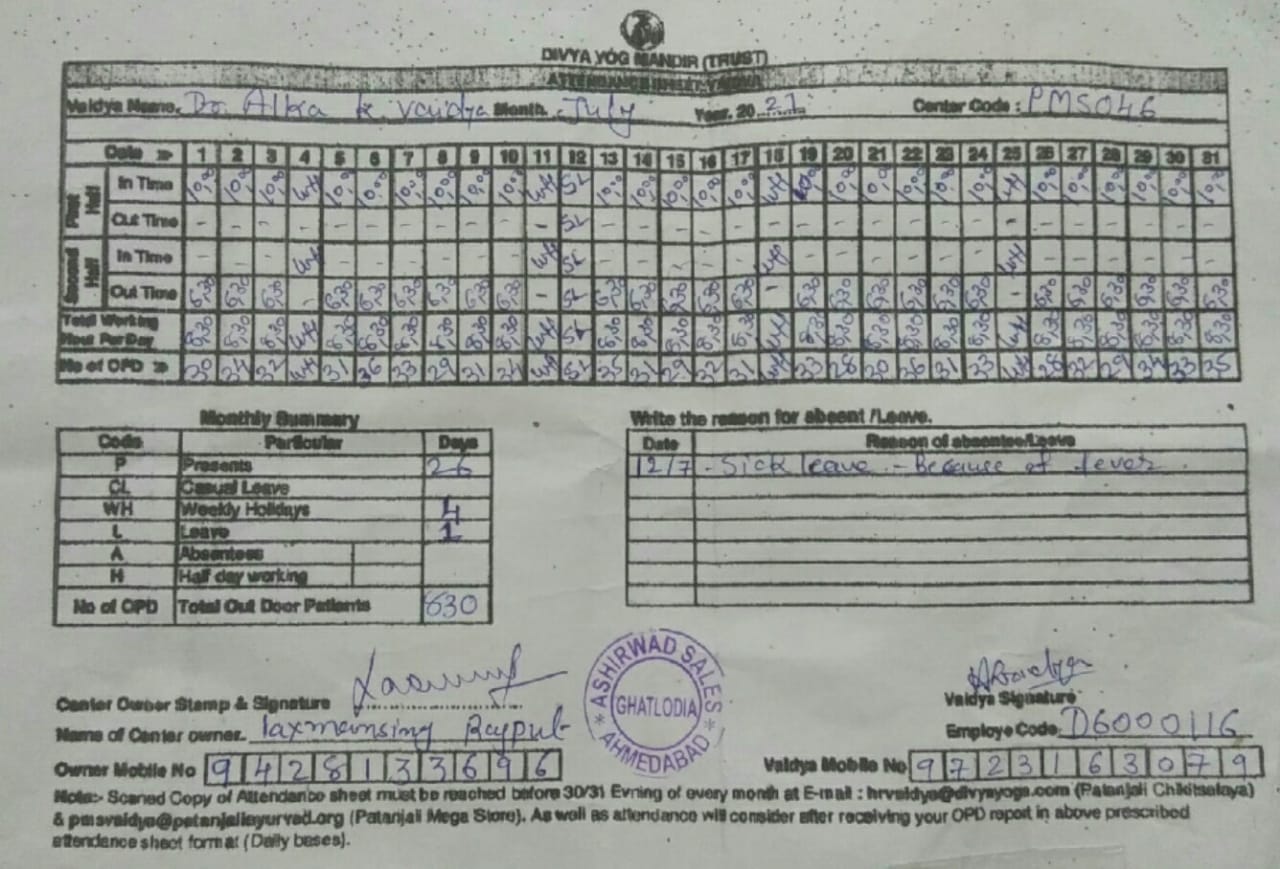 DIVYA YOG MANDIR (TRUST)
ATTENDANCE SHEET VAIDYA
Vaidya Name. Dr. Alka K. Vaidya Month. July Year. 20 21 Center Code : PMS046
Date » 1 2 3 4 5 6 7 8 9 10 11 12 13 14 15 16 17 18 19 20 21 22 23 24 25 26 27 28 29 30 31
First Half In Time 10,00 10,00 10,00 WH 10,00 10,00 10,00 10,00 10,00 10,00 WH SL 10,00 10,00 10,00 10,00 10,00 WH 10,00 10,00 10,00 10,00 10,00 10,00 WH 10,00 10,00 10,00 10,00 10,00 10,00
Out Time - - - - - - - - - - - SL - - - - - - - - - - - - - - - - - - -
Second Half In Time - - - WH - - - - - - WH SL - - - - - WH - - - - - - WH - - - - - -
Out Time 6,30 6,30 6,30 - 6,30 6,30 6,30 6,30 6,30 6,30 - SL 6,30 6,30 6,30 6,30 6,30 - 6,30 6,30 6,30 6,30 6,30 6,30 - 6,30 6,30 6,30 6,30 6,30 6,30
Total Working
Hour Per Day 8,30 8,30 8,30 WH 8,30 8,30 8,30 8,30 8,30 8,30 WH SL 8,30 8,30 8,30 8,30 8,30 WH 8,30 8,30 8,30 8,30 8,30 8,30 WH 8,30 8,30 8,30 8,30 8,30 8,30
No of OPD » 30 34 32 WH 31 36 33 29 31 34 WH SL 35 31 29 32 31 WH 33 28 30 36 31 33 WH 28 32 29 34 33 35
Monthly Summary
Code Particular Days
P Presents 26
CL Casual Leave
WH Weekly Holidays 4
L Leave 1
A Absentees
H Half day working
No of OPD Total Out Door Patients 830
Write the reason for absent /Leave.
Date Reason of absentee/Leave
12/7 - Sick leave - Because of fever.
Center Owner Stamp & Signature
ASHIRWAD SALES
GHATLODIA
* AHMEDABAD *
Vaidya Signature
Name of Center owner. Laxmansing Rajput
Employe Code: D6000116
Owner Mobile No 9428133696
Vaidya Mobile No 9723163079
Note:- Scaned Copy of Attendance sheet must be reached before 30/31 Evning of every month at E-mail : hrvaidya@divyayoga.com (Patanjali Chikitsalaya)
& pmsvaidya@patanjaliayurved.org (Patanjali Mega Store). As well as attendance will consider after receiving your OPD report in above prescribed
attendance sheet format (Daily bases).